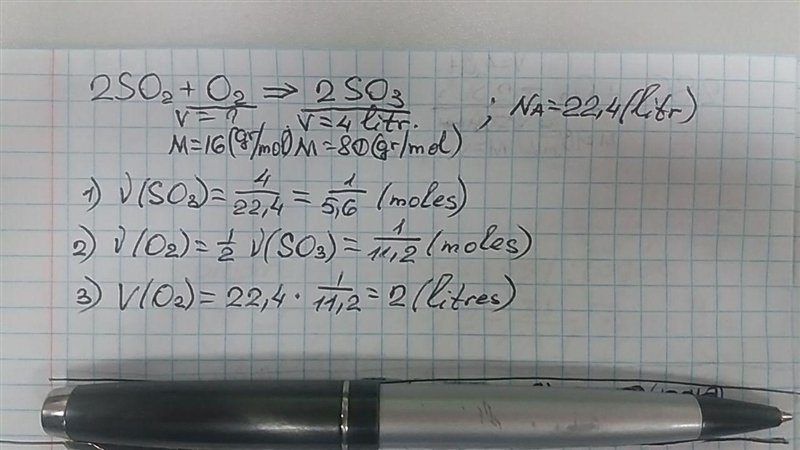 2SO₂ + O₂ ⇒ 2SO₃ ; NA=22,4(litr)
V=? V=4 litr.
M=16(gr/mol) M=80(gr/mol)
1) ν(SO₃)= 4/22,4 = 1/5,6 (moles)
2) ν(O₂)= 1/2 ν(SO₃)= 1/11,2 (moles)
3) V(O₂)= 22,4 · 1/11,2 = 2 (litres)